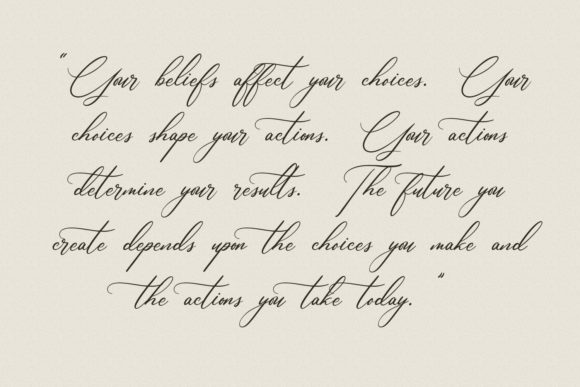 " Your beliefs affect your choices. Your
choices shape your actions. Your actions
determine your results. The future you
create depends upon the choices you make and
the actions you take today. "